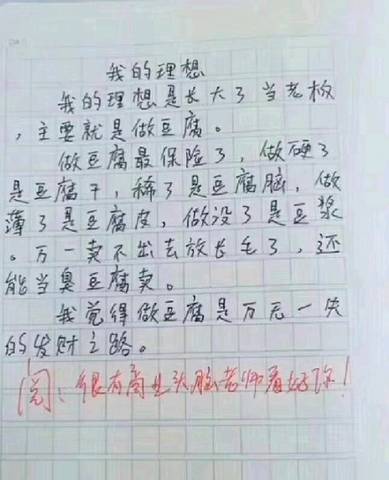 我的理想
我的理想是长大了当老板
，主要就是做豆腐。
做豆腐最保险了，做硬了
是豆腐干，稀了是豆腐脑，做
薄了是豆腐皮，做没了是豆浆
。万一卖不出去放长毛了，还
能当臭豆腐卖。
我觉得做豆腐是万无一失
的发财之路。
阅：很有商业头脑老师看好你！